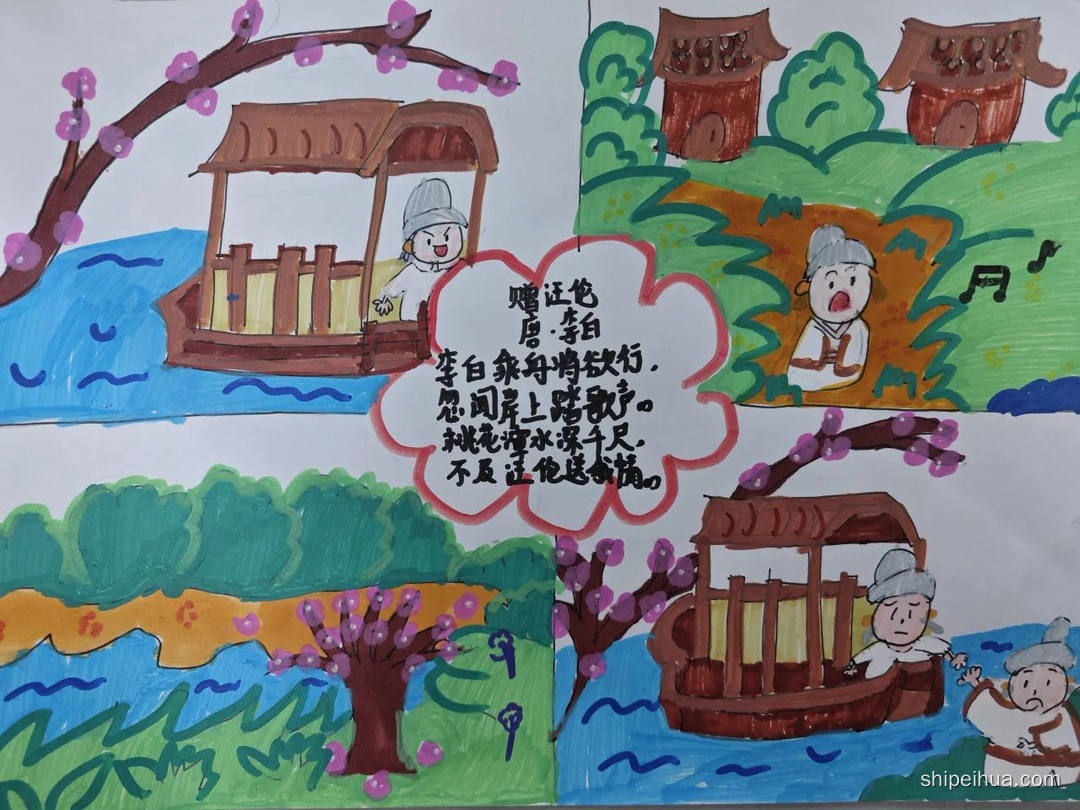 赠汪伦
唐·李白
李白乘舟将欲行，
忽闻岸上踏歌声。
桃花潭水深千尺，
不及汪伦送我情。
shipeihua.com